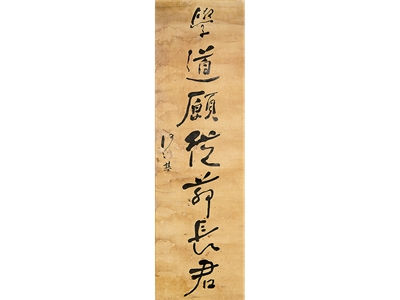 學道願從茆長君